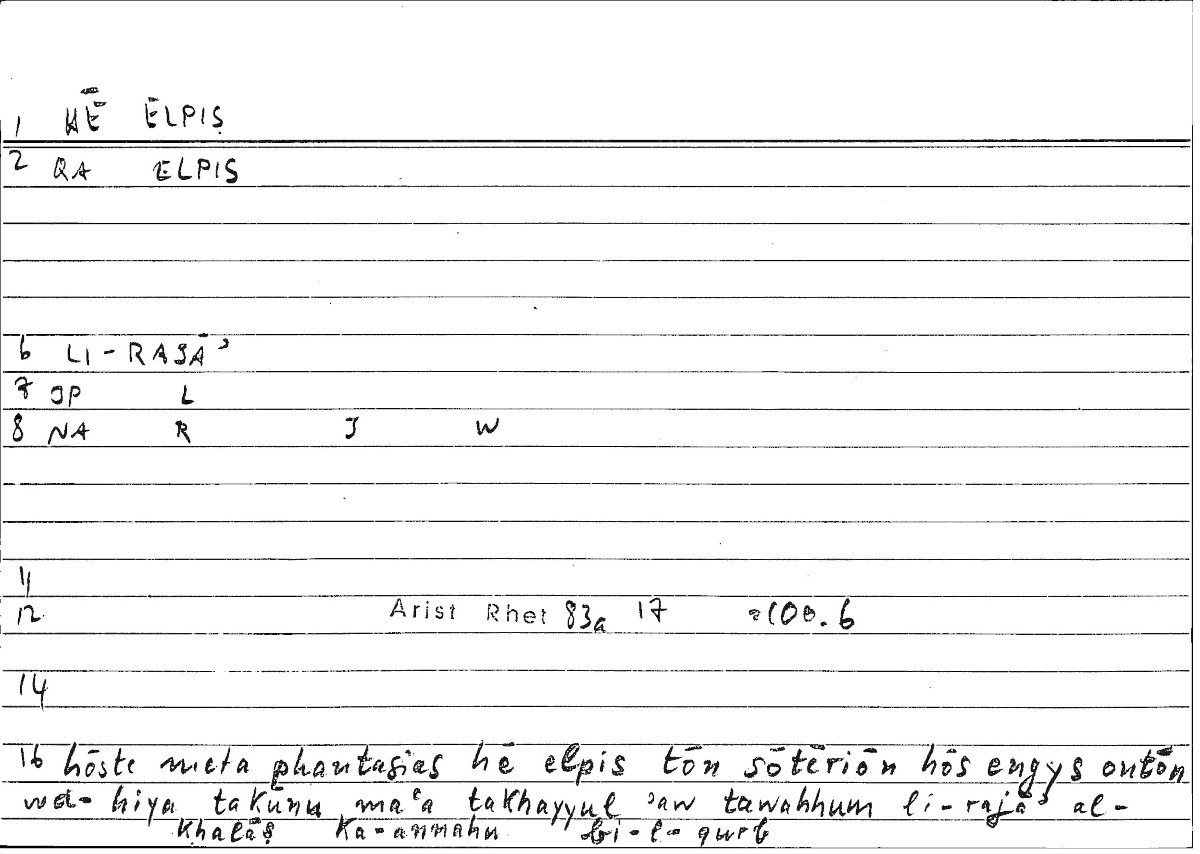 1 HĒ ĒLPIS
2 QA ELPIS
6 LI-RAJĀʾ
7 JP L
8 NA R J W
11
12 Arist Rhet 83a 17 =100.6
14
16 hōste meta phantasias hē elpis tōn sōtēriōn hōs engys ontōn
wa-hiya takūnu maʿa takhayyul ʾaw tawahhum li-rajāʾ al-
khalāṣ ka-annahu bi-l-qurb